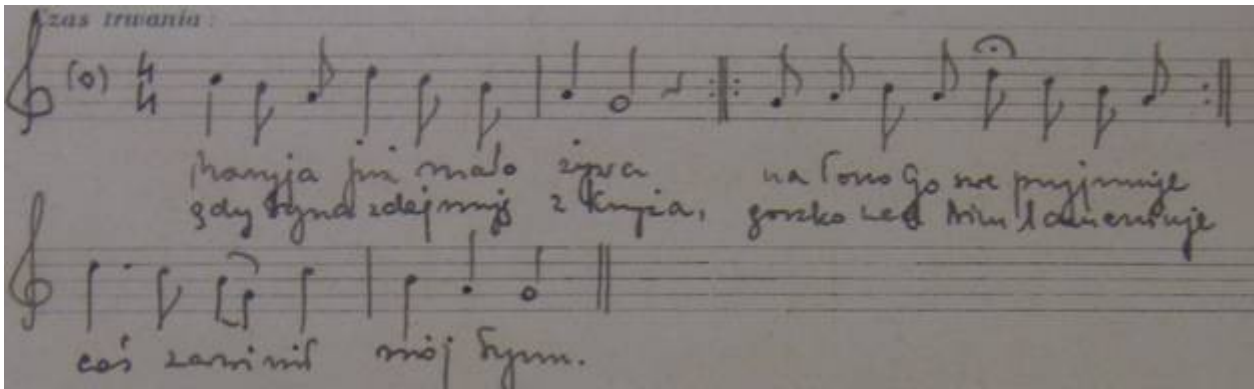 Czas trwania:
Maryja już mało żywa na łono Go swe przyjmuje
gdy Syna zdejmują z krzyża, gorzko nad Nim lamentuje
coś zawinił mój Synu.